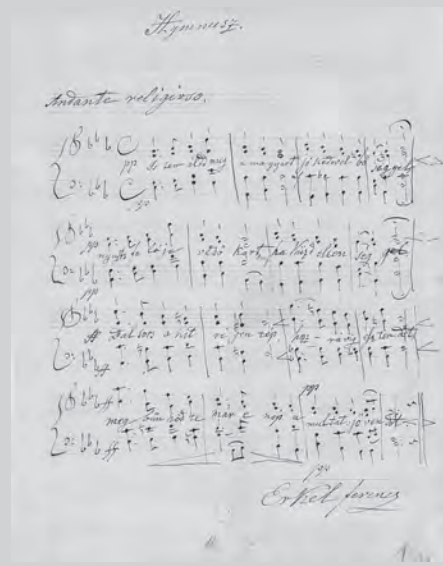 Hymnusz.
Andante religioso.
pp Is ten áldd meg a magyart jó kedvvel bő ség gel
nyújts fe lé je védő kart, ha küzd ellen ség gel
pp
Bal sors a kit ré gen tép, hoz rá víg
ff
meg bűn hőd te már e nép a multat jö ven
ff
Erkel Ferencz